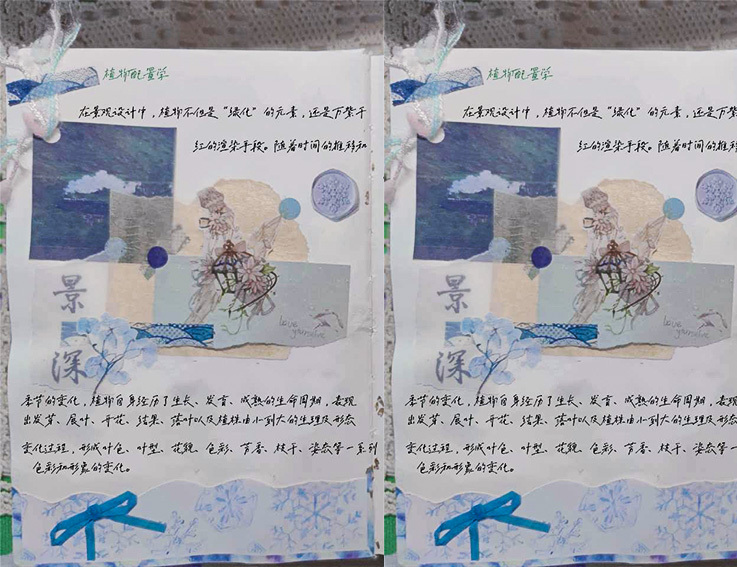 植物配置学
在景观设计中，植物不但是“绿化”的元素，还是万紫千
红的渲染手段。随着时间的推移和
景
深
love
季节的变化，植物自身经历了生长、发育、成熟的生命周期，表现
出发芽、展叶、开花、结果、落叶以及植株由小到大的生理及形态
变化过程，形成叶色、叶型、花貌、色彩、芳香、枝干、姿态等一系列
色彩和形象的变化。
植物配置学
在景观设计中，植物不但是“绿化”的元素，还是万紫
红的渲染手段。随着时间的推移
景
深
love
季节的变化，植物自身经历了生长、发育、成熟的生命周期，表现
出发芽、展叶、开花、结果、落叶以及植株由小到大的生理及形态
变化过程，形成叶色、叶型、花貌、色彩、芳香、枝干、姿态等一
色彩和形象的变化。